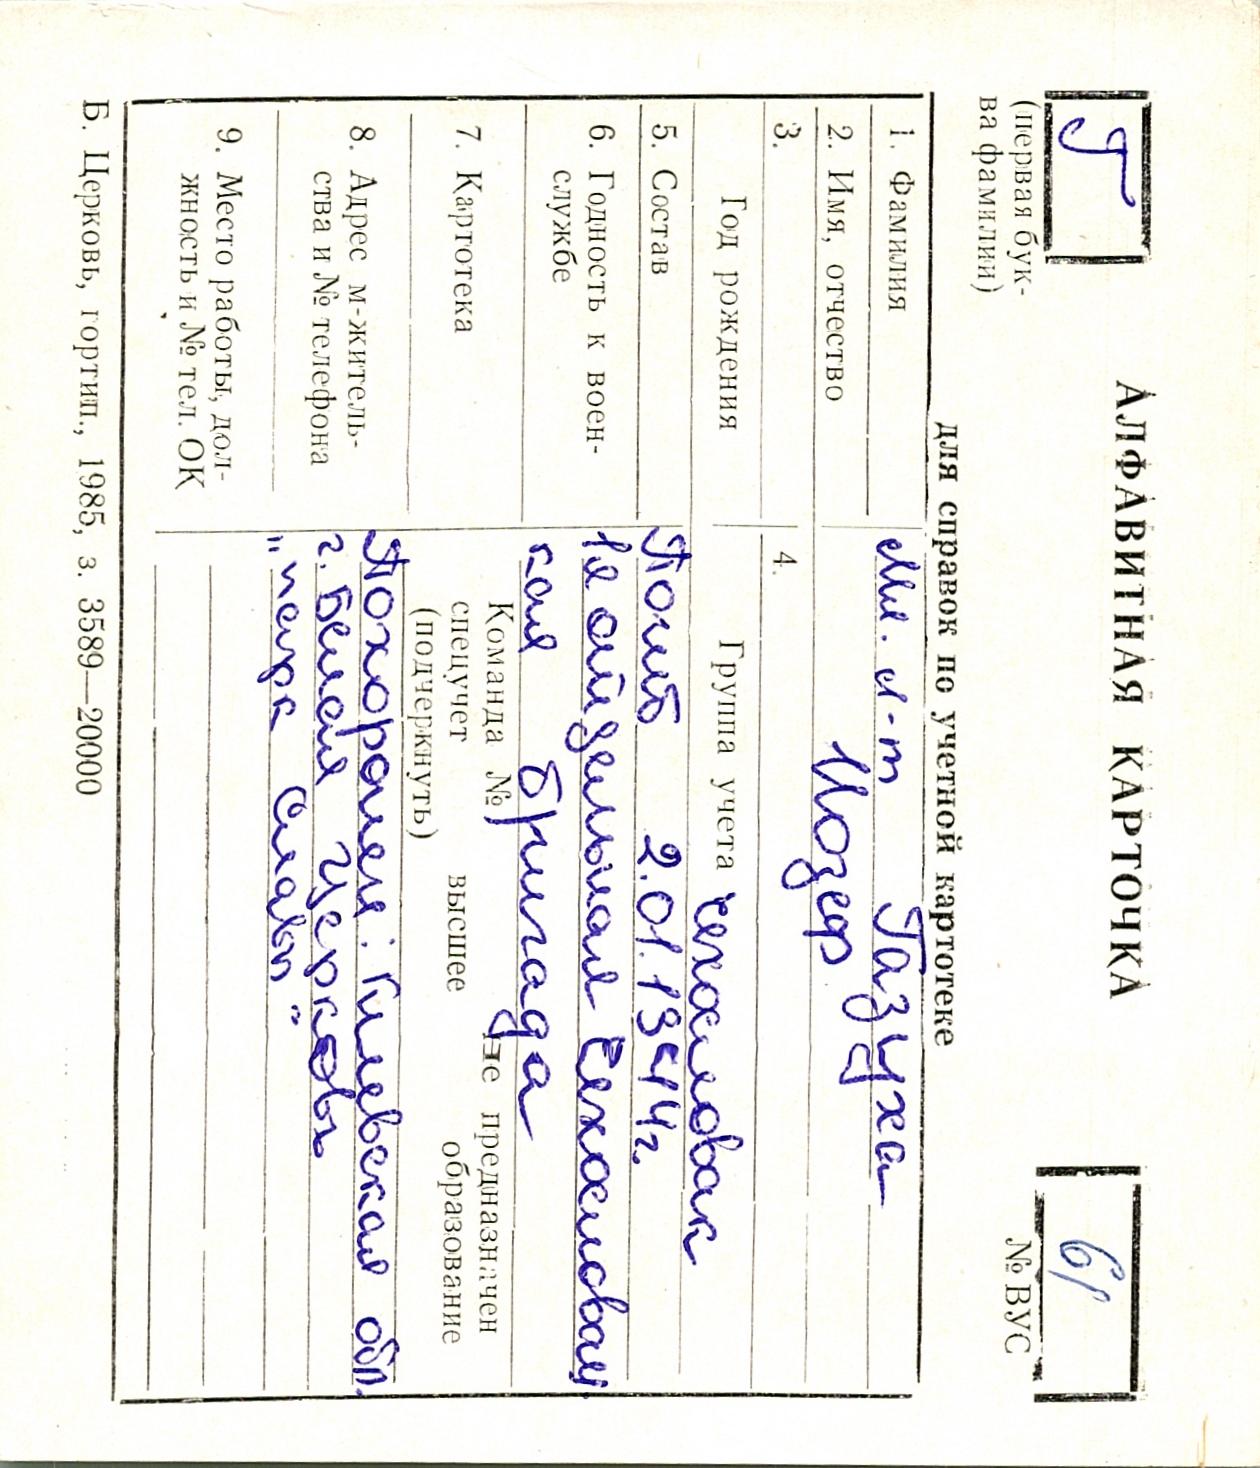 Г
(первая бук-
ва фамилии)
АЛФАВИТНАЯ КАРТОЧКА
для справок по учетной картотеке
61
№ ВУС
1. Фамилия мл. л-т Газуха
2. Имя, отчество Йозеф
3.
Год рождения
4.
Группа учета чехословак
5. Состав Погиб 2.01.1944г.
6. Годность к воен-
службе
1я отдельная Чехословац
кая бригада
7. Картотека
Команда №
не предназначен
спецучет высшее образование
(подчеркнуть)
8. Адрес м-житель-
ства и № телефона
Похоронен: Киевская обл.
г. Белая Церковь
"парк Славы"
9. Место работы, дол-
жность и № тел. ОК
Б. Церковь, гортип., 1985, з. 3589—20000